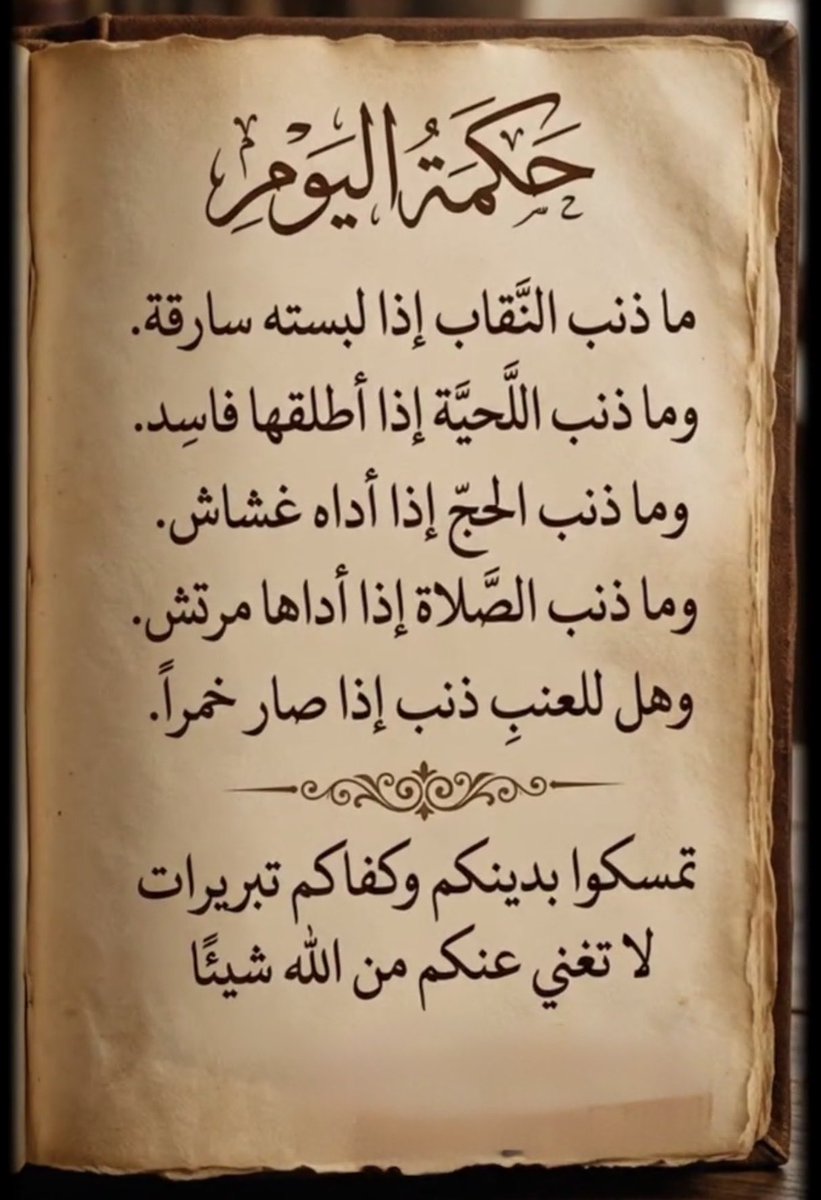 حَكَمَةُ اليَوْمِ
ما ذنب النَّقاب إذا لبسته سارقة.
وما ذنب اللَّحيَّة إذا أطلقها فاسِد.
وما ذنب الحجّ إذا أداه غشاش.
وما ذنب الصَّلاة إذا أداها مرتش.
وهل للعنبِ ذنب إذا صار خمراً.
تمسكوا بدينكم وكفاكم تبريرات
لا تغني عنكم من الله شيئًا